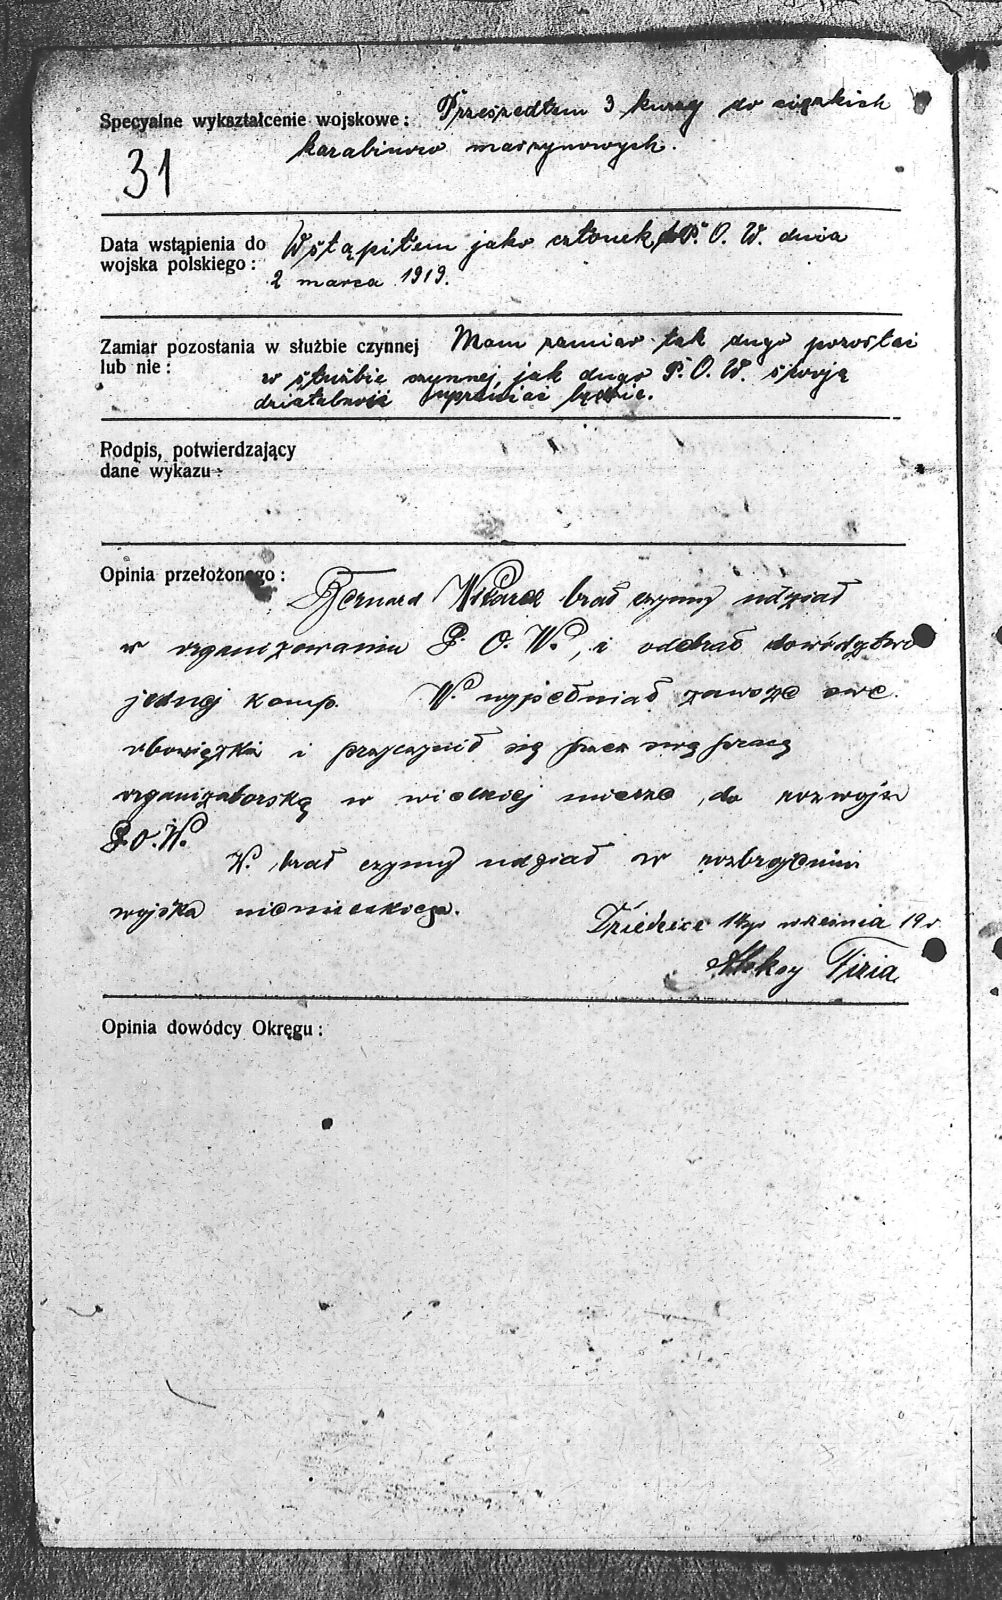 Specyalne wykształcenie wojskowe: Przeszedłem 3 kursy do ciężkich
karabinów maszynowych.
31
Data wstąpienia do
wojska polskiego: Wstąpiłem jako członek do P. O. W. dnia
2 marca 1919.
Zamiar pozostania w służbie czynnej
lub nie: Mam zamiar tak dugo pozostać
w służbie czynnej, jak dugo P. O. W. swoją
działalność uprawiać będzie.
Podpis, potwierdzający
dane wykazu:
Opinia przełożonego:
Bernard brał czynny udział
w organizowaniu P. O. W., i odebrał dowództwo
jednej komp. W. wypełniał zawsze swe
obowiązki i przyczynił się przez swą pracę
organizatorską w wielkiej mierze do rozwoju
P.O.W.
W. brał czynny udział w rozbrojeniu
wojska niemieckiego.
Dziedzice 14go września 19 r.
Aleksy Fizia
Opinia dowódcy Okręgu: